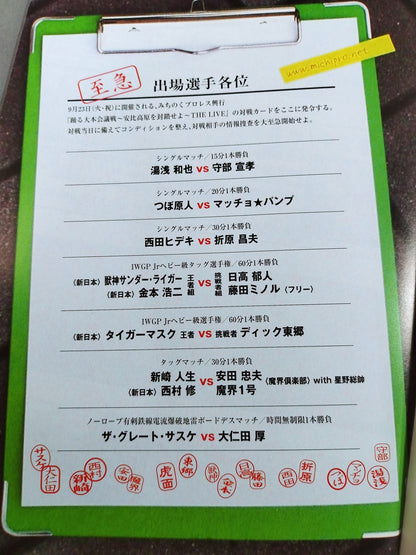 www.michipro.net
至急
出場選手各位
9月23日(火・祝)に開催される、みちのくプロレス興行
『踊る大本会議戦〜安比高原を封鎖せよ〜THE LIVE』の対戦カードをここに発令する。
対戦当日に備えてコンディションを整え、対戦相手の情報捜査を大至急開始せよ。
シングルマッチ/15分1本勝負
湯浅 和也 vs 守部 宣孝
シングルマッチ/20分1本勝負
つぼ原人 vs マッチョ★パンプ
シングルマッチ/30分1本勝負
西田ヒデキ vs 折原 昌夫
IWGP Jrヘビー級タッグ選手権/60分1本勝負
(新日本) 獣神サンダー・ライガー 王者組 vs 挑戦者組 日高 郁人
(新日本) 金本 浩二 藤田ミノル (フリー)
IWGP Jrヘビー級選手権/60分1本勝負
(新日本) タイガーマスク 王者 vs 挑戦者 ディック東郷
タッグマッチ/30分1本勝負
新崎 人生 vs 安田 忠夫 (魔界倶楽部) with 星野総帥
(新日本) 西村 修 魔界1号
ノーロープ有刺鉄線電流爆破地雷ボードデスマッチ/時間無制限1本勝負
ザ・グレート・サスケ vs 大仁田 厚
サスケ 大仁田 新崎 西村 安田 魔界 虎面 東郷 獣神 金本 日高 藤田 西田 折原 つぼ 湯浅 守部